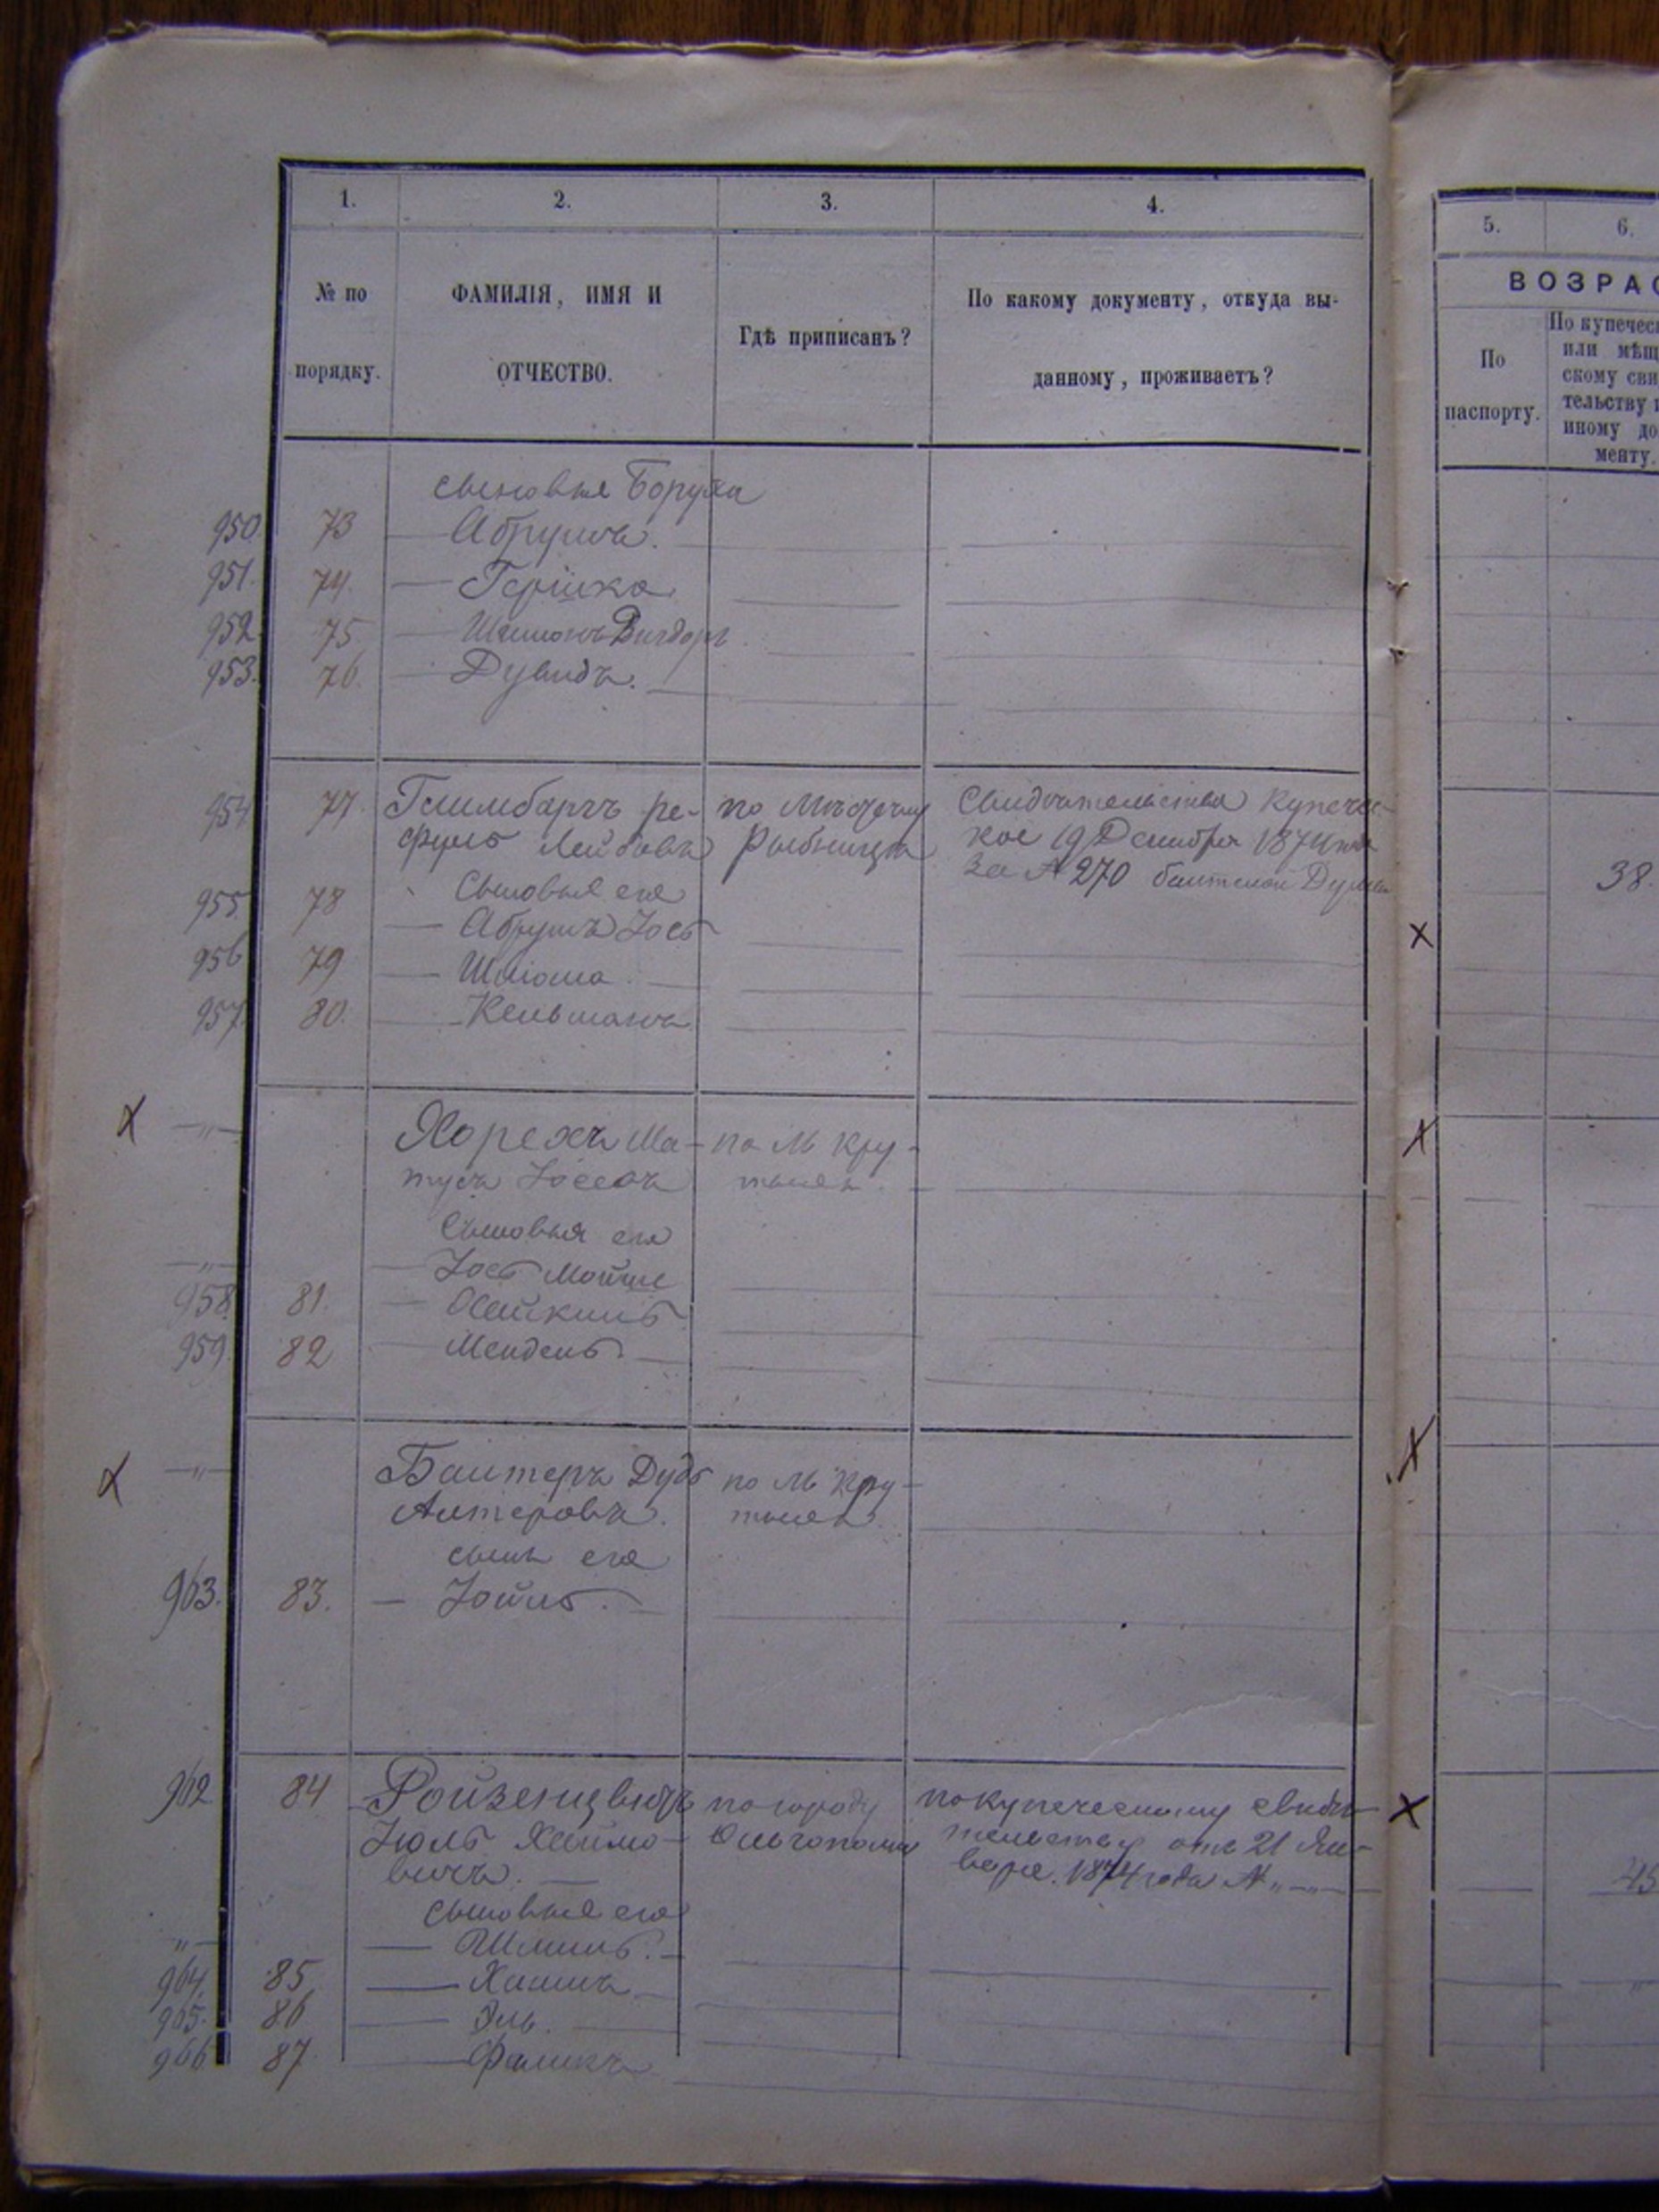 1. 2. 3. 4.
№ по порядку.
ФАМИЛІЯ, ИМЯ И
ОТЧЕСТВО.
Гдѣ приписанъ?
По какому документу, откуда вы-
данному, проживаетъ?
5. 6.
ВОЗРАС
По
паспорту.
По купечес
или мѣщ
скому сви
тельству и
иному до
менту.
сыновья Боруха
950. 73 — Абрумъ.
951. 74. — Гершко
952. 75 — Шлиома Вигдоръ
953. 76. — Дувидъ.
954 77. по Мѣстечку Свидѣтельства Купечес-
Лейбовъ Рыбница кое 19 Декабря 1874 года
за № 270 балтской Думы
38.
955. 78 Сыновья его
— Абрумъ Іось
956 79 — Шліома
957. 80. — Кельманъ
Хорехъ Ма- по М. Кру-
тусъ Іосевъ тымъ.
Сыновья его
— Іось Мойше
958. 81. — Хайкиль
959. 82 — Мендель.
Балтеръ Дудь по М. Кру-
Алтеровъ. тымъ.
сынъ его
963. 83. — Іойль.
962. 84 Ройзенцвигъ по городу по купеческому свидѣ-
Іюль Хаимо- Ольгополю тельству отъ 21 Ян-
вичъ. варя 1874 года №
45
сыновья его
— Шмиль.
964. 85. — Хаимъ
965. 86 — Эль.
966 87. — Фаликъ